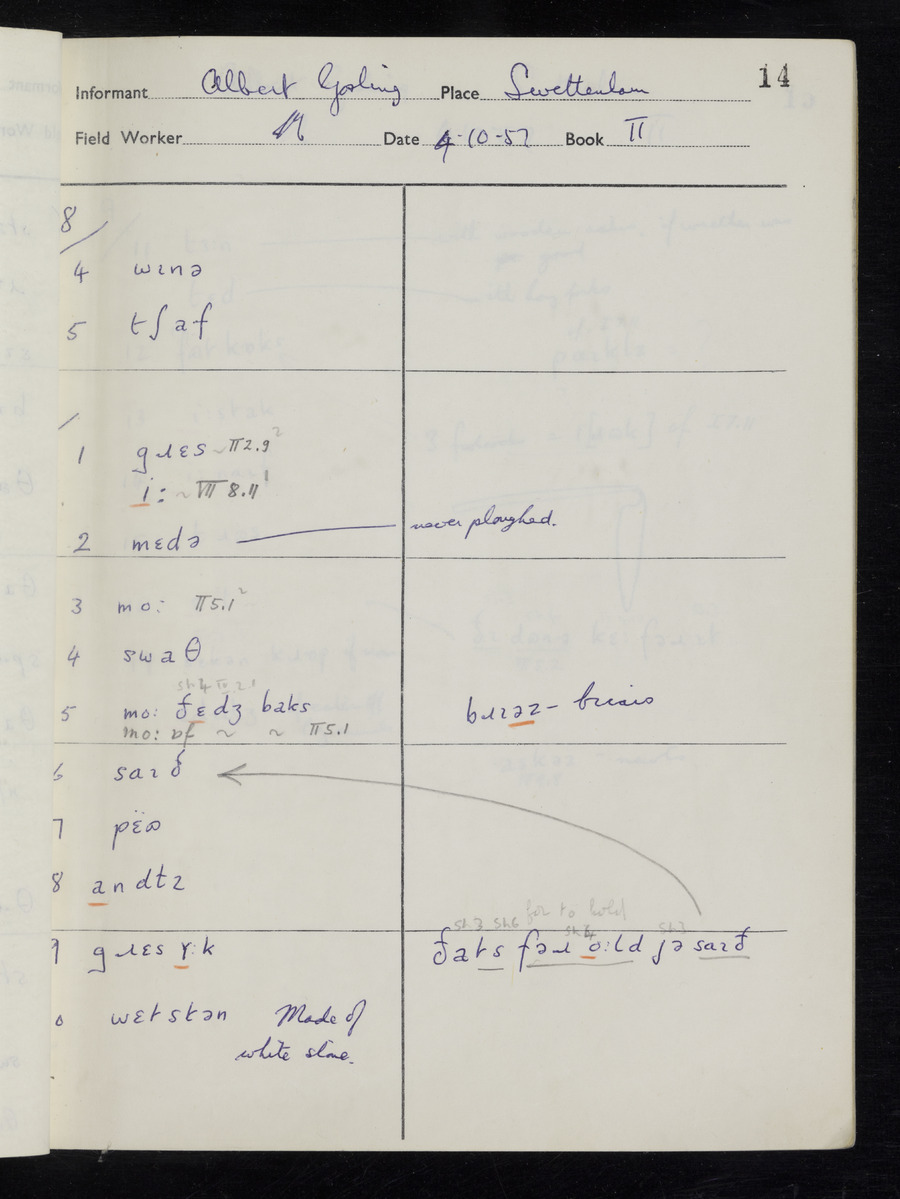 14
Informant Albert Gosling Place Swettenham
Field Worker Date 4-10-57 Book II
8/
4 wɪnə
5 tʃaf
/
1 gɹɛs ~ II 2.9²
i: ~ VII 8.11¹
2 mɛdə never ploughed.
3 mo: II 5.1²
4 swaθ
5 mo: ðɛdʒ baks bɹɪəz – briars
mo: ɒf ~ ~ II 5.1
6 saɪð
7 pɛ̈ɷ
8 andtz
for to hold
sh.3 sh.6 sh.4 sh.3
9 gɹɛs ɣ:k ðats fəɹ o:ld jə saɪð
0 wɛtstən Made of
white stone.